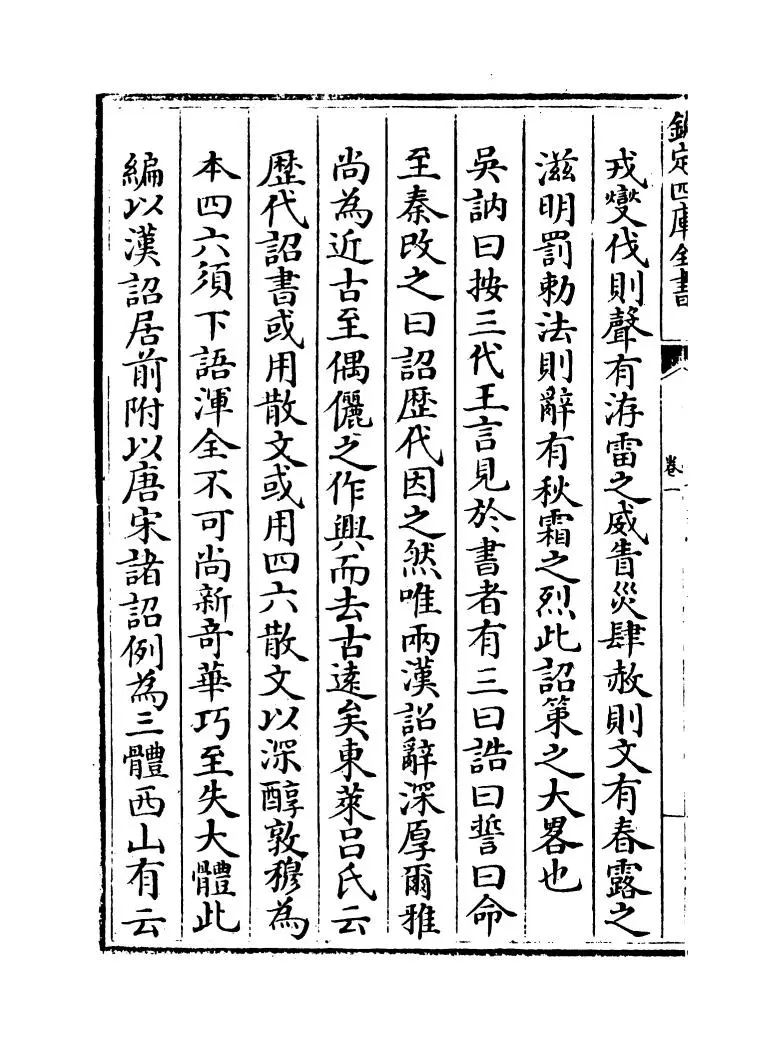 欽定四庫全書
卷一
戎燮伐則聲有洊雷之威眚災肆赦則文有春露之
滋明罰勅法則辭有秋霜之烈此詔策之大畧也
吳訥曰按三代王言見於書者有三曰誥曰誓曰命
至秦改之曰詔歴代因之然唯兩漢詔辭深厚爾雅
尚為近古至偶儷之作興而去古遠矣東萊呂氏云
歴代詔書或用散文或用四六散文以深醇敦穆為
本四六須下語渾全不可尚新竒華巧至失大體此
編以漢詔居前附以唐宋諸詔例為三體西山有云